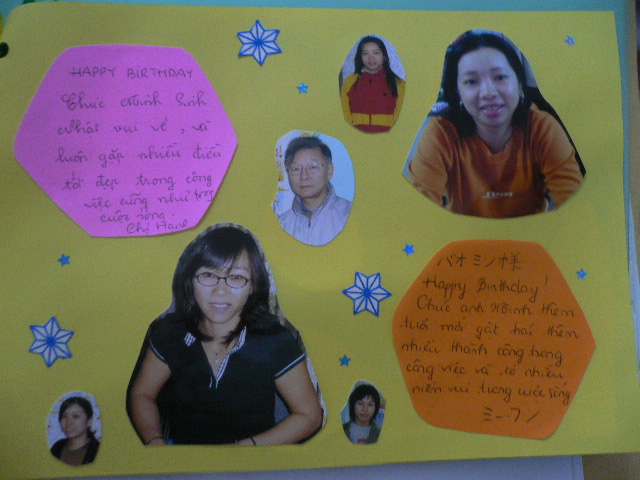 HAPPY BIRTHDAY
Chúc Minh Sinh
Nhật vui vẻ, và
luôn gặp nhiều điều
tốt đẹp trong công
việc cũng như trong
cuộc sống.
Chị
HAPPY BIRTHDAY
バオミン様
Happy Birthday!
Chúc anh Minh thêm
tuổi mới gặt hái thêm
nhiều thành công trong
công việc và có nhiều
niềm vui trong cuộc sống